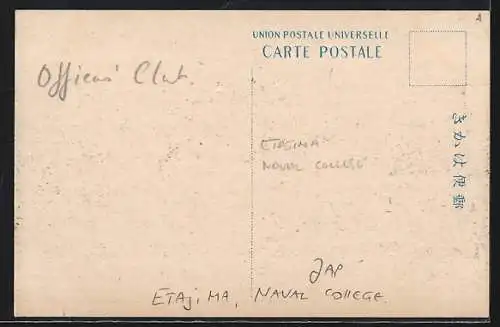 UNION POSTALE UNIVERSELLE
CARTE POSTALE
A
Officers' Club.
ETAJIMA
NAVAL COLLEGE
きかは便郵
JAP
ETAJIMA, NAVAL COLLEGE